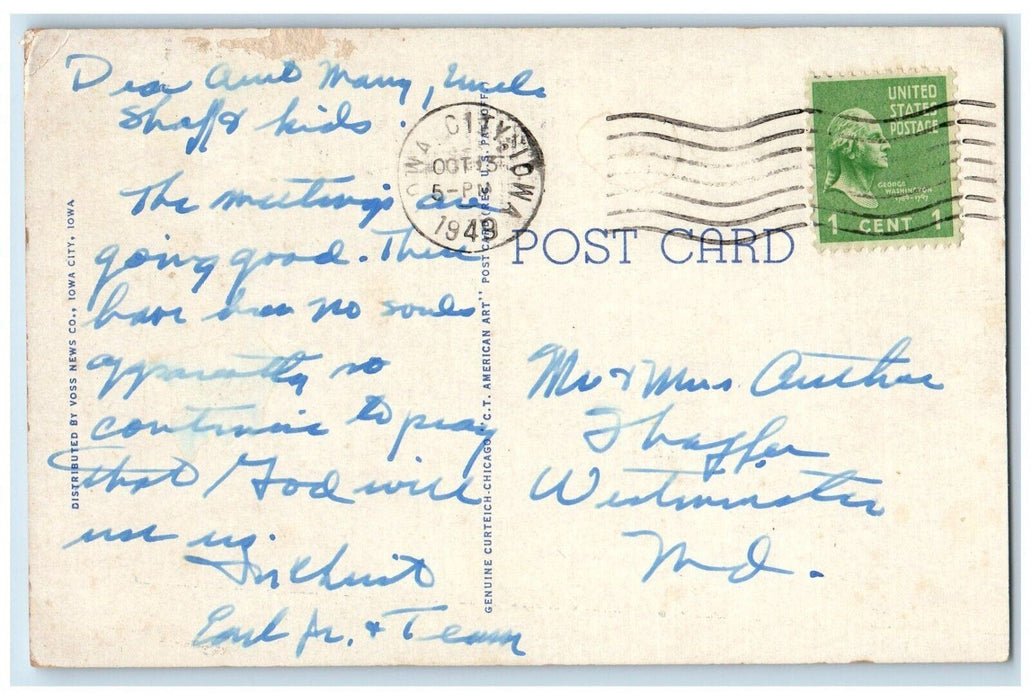 Dear Aunt Mary, Uncle
Shaff & kids.
The meetings are
going good. There
have been no souls
apparently so
continue to pray
that God will
use us.
In Christ
Earl Jr. & Team
DISTRIBUTED BY VOSS NEWS CO., IOWA CITY, IOWA
GENUINE CURTEICH-CHICAGO "C.T. AMERICAN ART" POST CARD (REG. U.S. PAT. OFF.)
IOWA CITY, IOWA
OCT 13
5-PM
1948
UNITED
STATES
POSTAGE
GEORGE
WASHINGTON
1 CENT 1
POST CARD
Mr & Mrs Arthur
Shaffer
Westminster
Md.